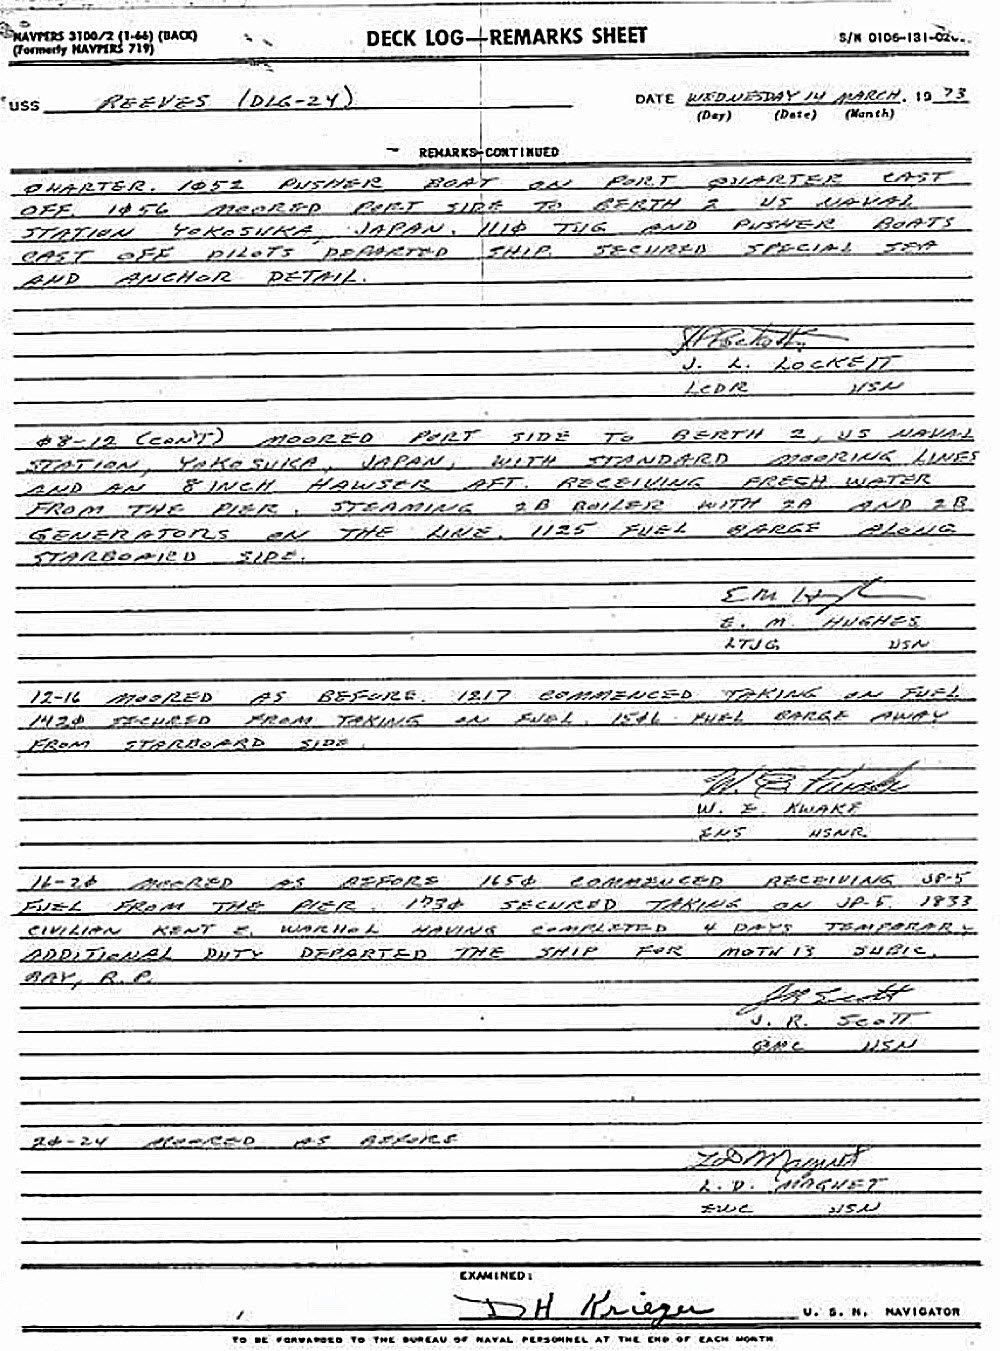 NAVPERS 3100/2 (1-66) (BACK)
(Formerly NAVPERS 719)
DECK LOG—REMARKS SHEET
S/N 0106-131-
USS REEVES (DLG-24)
DATE WEDNESDAY 14 MARCH, 19 73
(Day) (Date) (Month)
REMARKS-CONTINUED
QUARTER. 1Ø52 PUSHER BOAT ON PORT QUARTER CAST
OFF. 1Ø56 MOORED PORT SIDE TO BERTH 2 US NAVAL
STATION YOKOSUKA, JAPAN. 111Ø TUG AND PUSHER BOATS
CAST OFF PILOTS DEPARTED SHIP. SECURED SPECIAL SEA
AND ANCHOR DETAIL.
J. L. LOCKETT
LCDR USN
Ø8-12 (CON'T) MOORED PORT SIDE TO BERTH 2, US NAVAL
STATION, YOKOSUKA, JAPAN, WITH STANDARD MOORING LINES
AND AN 8 INCH HAWSER AFT. RECEIVING FRESH WATER
FROM THE PIER. STEAMING 2B BOILER WITH 2A AND 2B
GENERATORS ON THE LINE. 1125 FUEL BARGE ALONG
STARBOARD SIDE.
E. M. HUGHES
LTJG USN
12-16 MOORED AS BEFORE. 1217 COMMENCED TAKING ON FUEL
142Ø SECURED FROM TAKING ON FUEL. FUEL BARGE AWAY
FROM STARBOARD SIDE.
W. E. KWAKE
ENS USNR
16-2Ø MOORED AS BEFORE 165Ø COMMENCED RECEIVING JP-5
FUEL FROM THE PIER. 173Ø SECURED TAKING ON JP-5. 1833
CIVILIAN KENT E. WARHOL HAVING COMPLETED 4 DAYS TEMPORARY
ADDITIONAL DUTY DEPARTED THE SHIP FOR MOTU 13 SUBIC
BAY, R.P.
J R Scott
J. R. SCOTT
QMC USN
2Ø-24 MOORED AS BEFORE
L D Magnet
L. D. MAGNET
EWC USN
EXAMINED:
D H Krieger U. S. N. NAVIGATOR
TO BE FORWARDED TO THE BUREAU OF NAVAL PERSONNEL AT THE END OF EACH MONTH